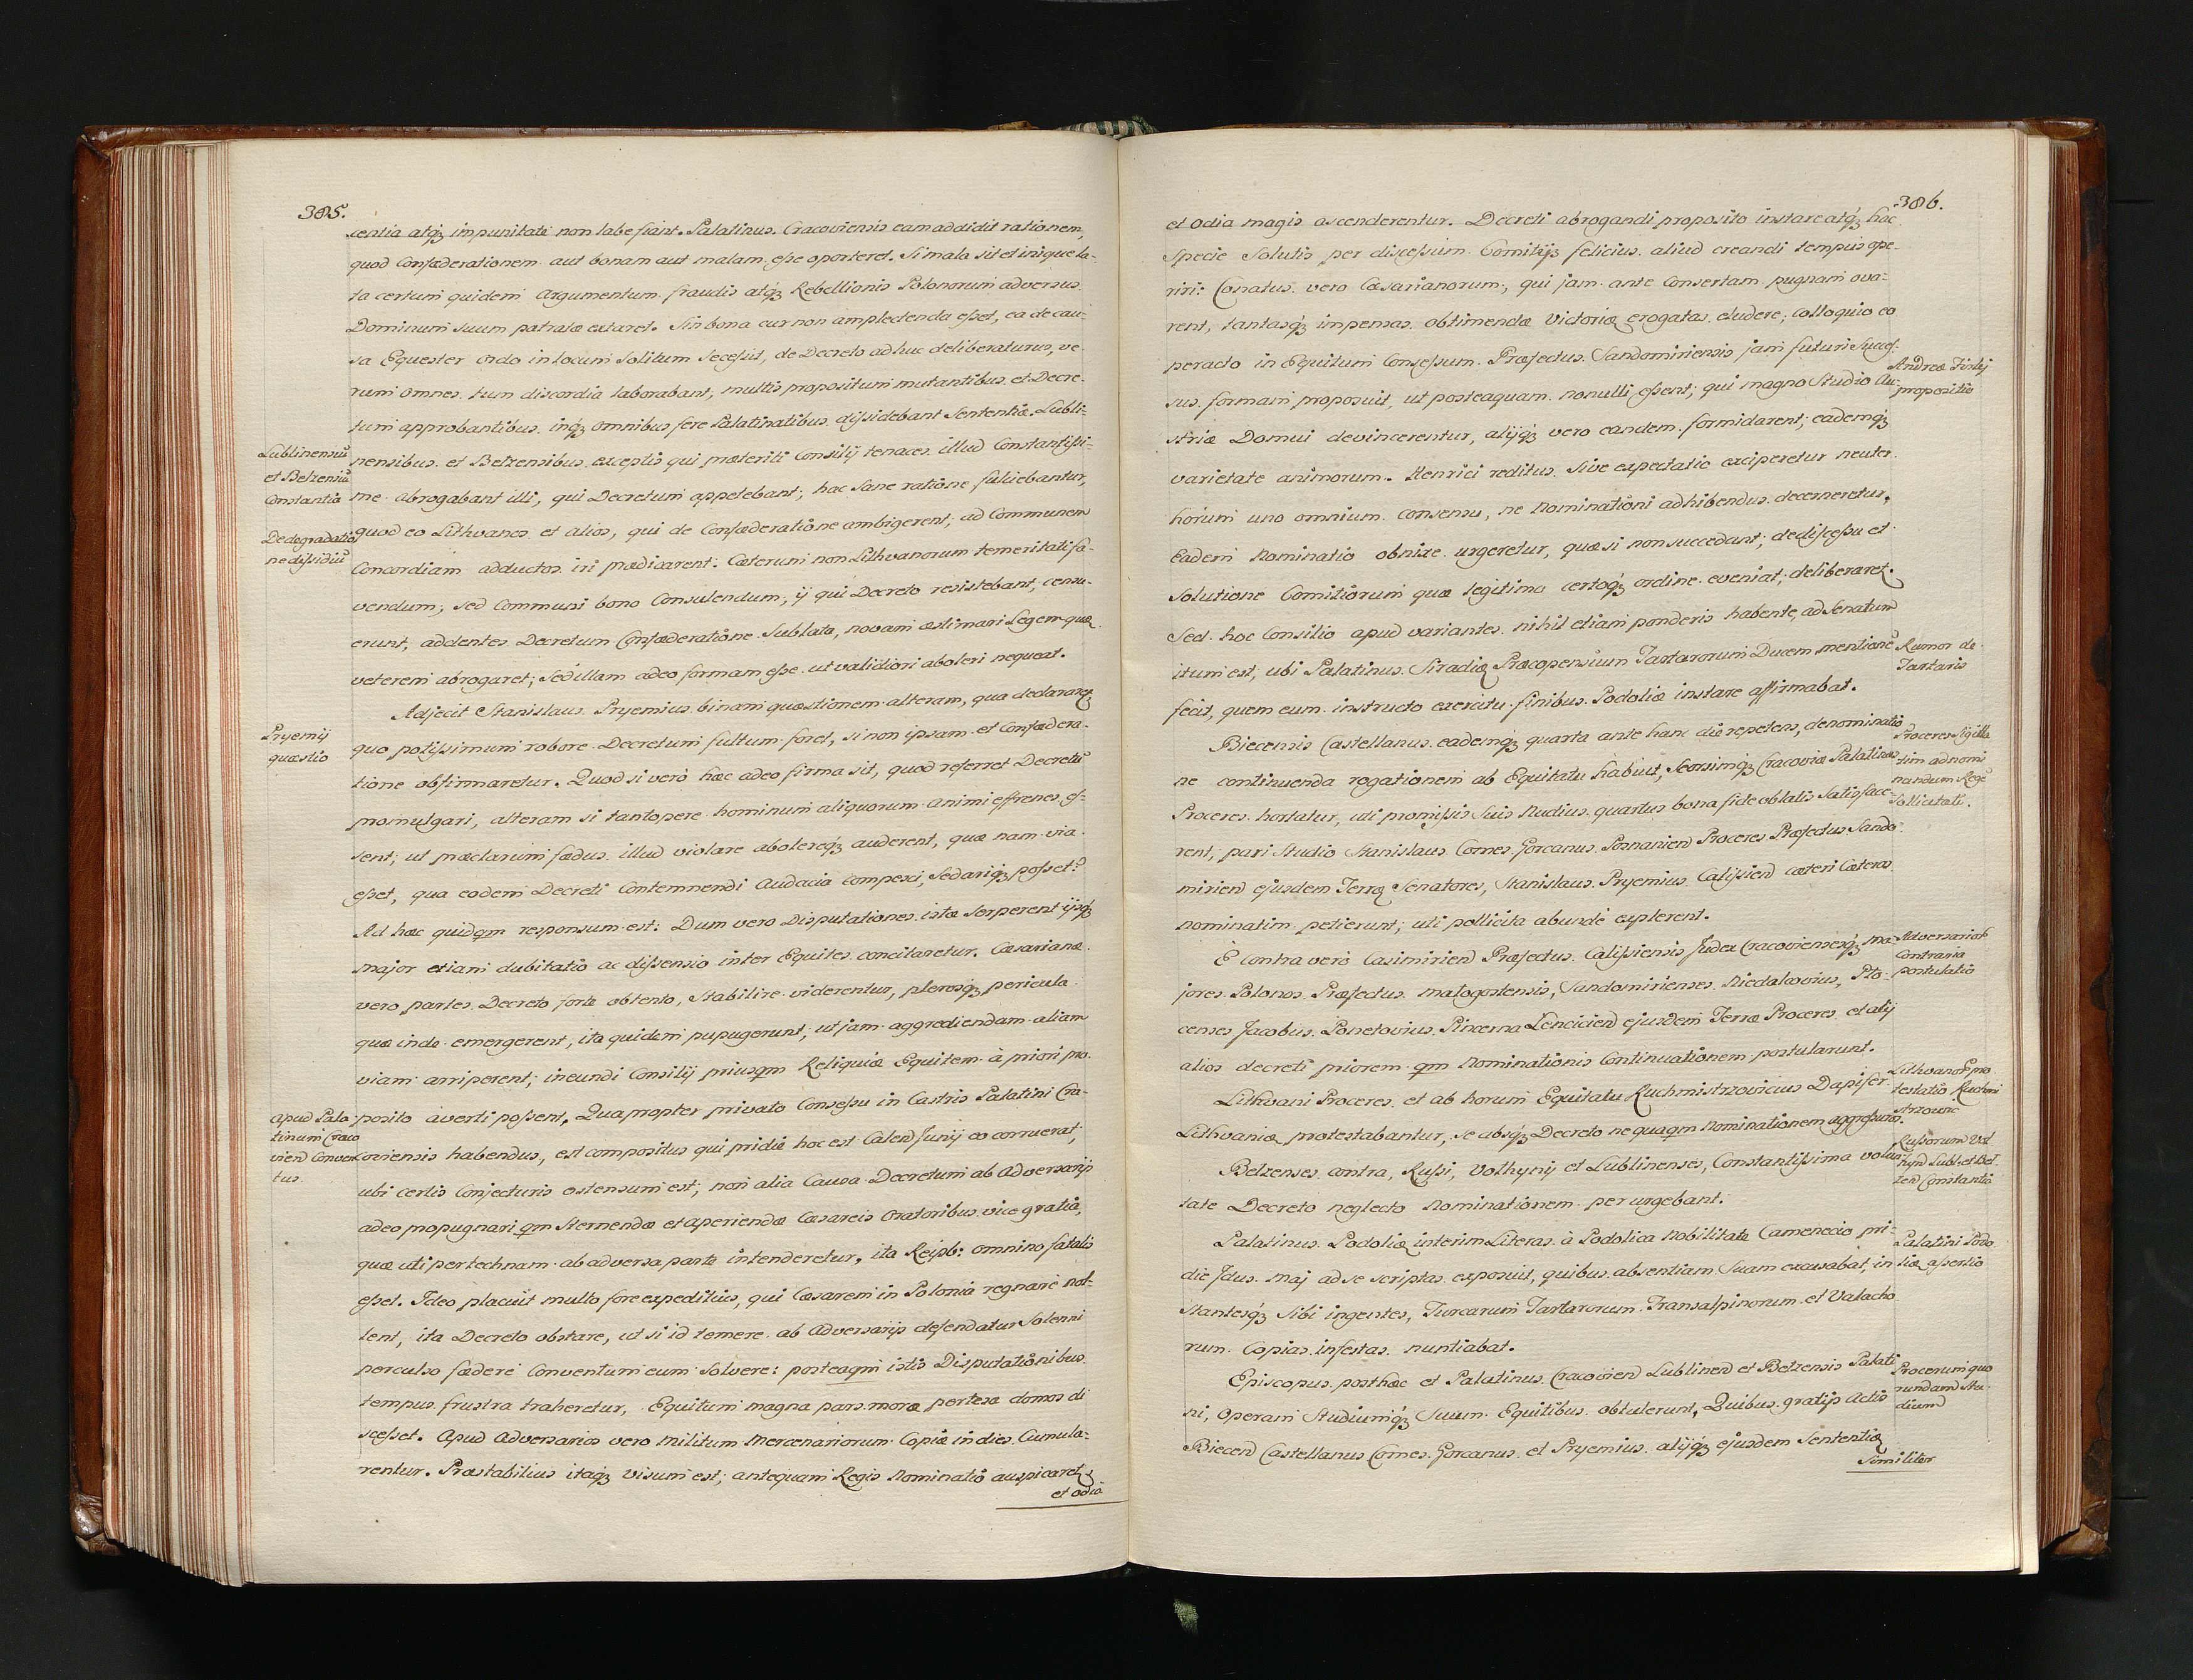 385.
centia atq́3 impunitate non labefiant. Palatinus Cracoviensis eam addidit rationem,
quod Confæderationem aut bonam aut malam eſse oporteret. Si mala sit et inique la-
ta certum quidem argumentum fraudis atq́3 Rebellionis Polonorum adversus
Dominum suum patratæ extaret. Sin bona cur non amplectenda eſset, ea de cau-
sa Equester ordo in locum solitum Seceſsit, de Decreto adhuc deliberaturus, ve
rum omnes tum discordia laborabant, multis propositum mutantibus et Decre-
tum approbantibus inq́3 omnibus fere Palatinatibus diſsidebant Sententiæ. Lubli-
Lublinensiū
et Belzensiū
Constantia
nensibus et Belzensibus exceptis qui præteriti Consilij tenaces illud Constantiſsi-
me abrogabant illi, qui Decretum appetebant; hac Sane ratione falliebantur,
De degradatio
ne diſsidiū
quod eo Lithvanos et alios, qui de Confæderatione ambigerent, ad Communem
Concordiam adductos iri prædicarent: Cæterum non Lithvanorum temeritati fa-
vendum; sed Communi bono Consulendum; ij qui Decreto resistebant, censu-
erunt, addentes Decretum Confæderatione Sublata, novam æstimari Legem quæ
veterem abrogaret; Sed illam adeo formam eſse ut validiori aboleri nequeat.
Adjecit Stanislaus Pryemius binam quæstionem alteram, qua declararet
Pryemij
quæstio
quo potiſsimum robore Decretum fultum foret, si non ipsam et Confædera-
tione obfirmaretur. Quod si verò hæc adeo firma sit, quod referret Decretū
promulgari, alteram si tantopere hominum aliquorum animi effrenes eſ-
sent; ut præclarum fædus illud violare abolereq́3 auderent, quæ nam via
eſset, qua eodem Decreti Contemnendi audacia compesci, Sedariq́3 poſset?
Ad hæc quidqm responsum est: Dum vero Disputationes istæ Serperent ijsq́3
major etiam dubitatio ac diſsensio inter Equites concitaretur. Cæsarianæ
vero partes Decreto forte obtento, Stabilire viderentur, plerosq́3 pericula
quæ inde emergerent, ita quidem pupugerunt, ut jam aggrediendam aliam
viam arriperent; ineundi Consilij priusqm Reliquiæ Equitem à priori pro-
apud Pala
tinum Craco
vien Conven
tus
posito averti poſsent, Quapropter privato Conseſsu in Castris Palatini Cra-
coviensis habendus, est compositus qui pridiè hoc est Calen Junij eo corruerat;
ubi certis Conjecturis ostensum est; non alia Causa Decretum ab Adversarijs
adeo propugnari qm Sternendæ et aperiendæ Cæsareis Oratoribus vice gratiâ,
quæ uti per technam ab adversa parte intenderetur, ita Reipb: omnino fatalis
eſset. Ideo placuit multo fore expeditius, qui Cæsarem in Polonia regnare nol-
lent, ita Decreto obstare, ut si id temere ab Adversarijs defendatur Solenni
perculso fædere Conventum eum Solvere: posteaqm istis Disputationibus
tempus frustra traheretur, Equitum magna pars moræ pertesa domos di
sceſset. Apud Adversarios vero militum Mercenariorum Copiæ in dies Cumula-
rentur. Præstabilius itaq́3 visum est; antequam Regis Nominatio auspicaret
et odia
386.
et Odia magis ascenderentur. Decreti abrogandi proposito instare atq́3 hac
Specie Solutis per disceſsum Comitijs felicius aliud creandi tempus ope-
riri: Conatus vero Cæsarianorum, qui jam ante Consertam pugnam ova-
rent, tantasq́3 impensas obtimendæ Victoriæ erogatas eludere; Colloquio eo
peracto in Equitum Conseſsum Præfectus Sandomiriensis jam futuri Succeſ-
Andreæ Firlej
propositio
sus formam proposuit, ut posteaquam nonulli eſsent; qui magno Studio Au-
striæ Domui devincerentur, alijq́3 vero eandem formidarent; eademq́3
varietate animorum Henrici reditus Sive expectatio exciperetur neuter
horum uno omnium consensu, ne Nominationi adhibendus decerneretur,
Eadem Nominatio obnixe urgeretur, quæ si non succedant; de disceſsu et
Solutione Comitiorum quæ legitimo certoq́3 ordine eveniat; deliberaret.
Sed hoc Consilio apud variantes nihil etiam ponderis habente, ad Senatum
Rumor de
Tartaris
itum est, ubi Palatinus Siradiæ Præcopensium Tartarorum Ducem mentionē
fecit, quem eum instructo exercitu finibus Podoliæ instare affirmabat.
Biecensis Castellanus eademq́3 quarta ante hanc diē repetens, de nominatio
Proceres Sigilla
tim ad nomi
nandum Regē
Sollicitati.
ne continuenda rogationem ab Equitatu habuit, Seorsimq́3 Cracoviæ Palatinus
Proceres hortatur, uti promiſsis Suis Nudius quartus bona fide oblatis Satisface-
rent; pari Studio Stanislaus Comes Gorcanus Posnanien Proceres Præfectus Sando
mirien ejusdem Terræ Senatores, Stanislaus Pryemius Caliſsien cæteri Cæteros
nominatim petierunt; uti pollicita abundè explerent.
È contra verò Casimirien Præfectus Caliſsiensis Judex Cracoviensesq́3 ma-
Adversarior
Contraria
postulatio
jores Polonos Præfectus Matogostensis, Sandomirienses Niedalcovius, Plo-
censes Jacobus Ponetovius Pincerna Lencicien ejusdem Terræ Proceres et alij
alios decreti priorem qm Nominationis Continuationem postularunt.
Lithvanor pro
testatio Kuchmi
strzovic
Lithvani Proceres et ab horum Equitatu Kuchmistrzovicius Dapifer
Lithvaniæ protestabantur, se absq́3 Decreto nequaqm Nominationem aggreſsuros.
Ruſsorum Vol
hyn Lubl. et Bel-
zen Constantia
Belzenses contra, Ruſsi, Volhynij et Lublinenses, Constantiſsima volun
tate Decreto neglecto Nominationem per urgebant.
Palatinus Podoliæ interim Literas à Podolica Nobilitate Camenecio pri-
Palatini Podo
liæ aſsertio
die Idus Maj ad se scriptas exposuit, quibus absentiam Suam excusabat, in
Stantesq́3 Sibi ingentes, Turcarum Tartarorum Transalpinorum et Valacho
rum Copias infestas nuntiabat.
Episcopus posthæc et Palatinus Cracovien Lublinen et Belzensis Palati
Procerum quo
rundam Stu-
dium
ni, Operam Studiumq́3 Suum Equitibus obtulerunt, Quibus gratijs Actis
Biecen Castellanus Comes Gorcanus et Pryemius alijq́3 ejusdem Sententiæ
Similiter